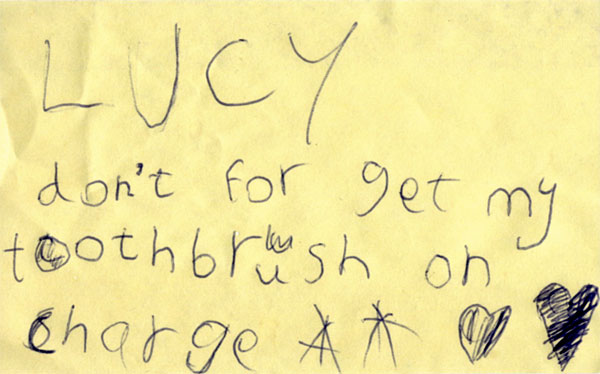 LUCY
don't for get my
toothbrush on
charge